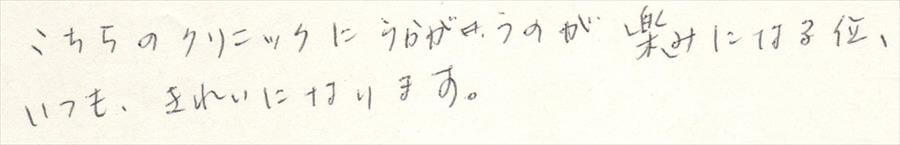 こちらのクリニックにうかがうのが 楽みになる位、
いつも、きれいになります。